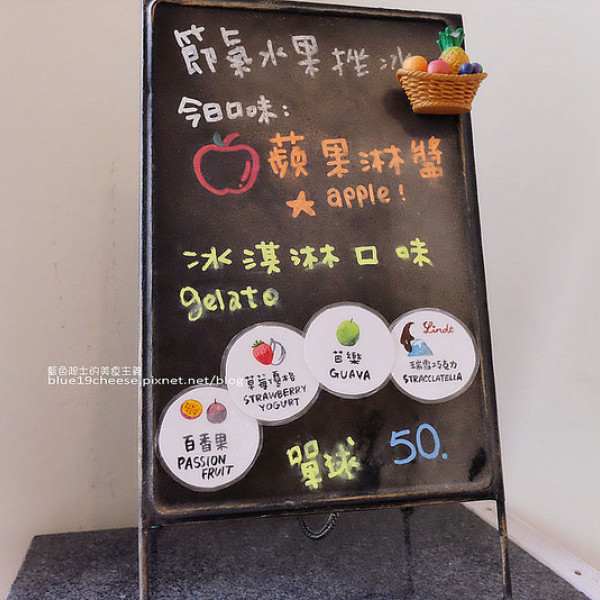 節氣水果挫冰
今日口味:
蘋果淋醬
apple!
冰淇淋口味
gelato
Lindt
瑞雪巧克力
STRACCLATELLA
芭樂
GUAVA
草莓優格
STRAWBERRY
YOGURT
百香果
PASSION
FRUIT
單球 50.
藍色起士的美食主義
blue19cheese.pixnet.net/blog